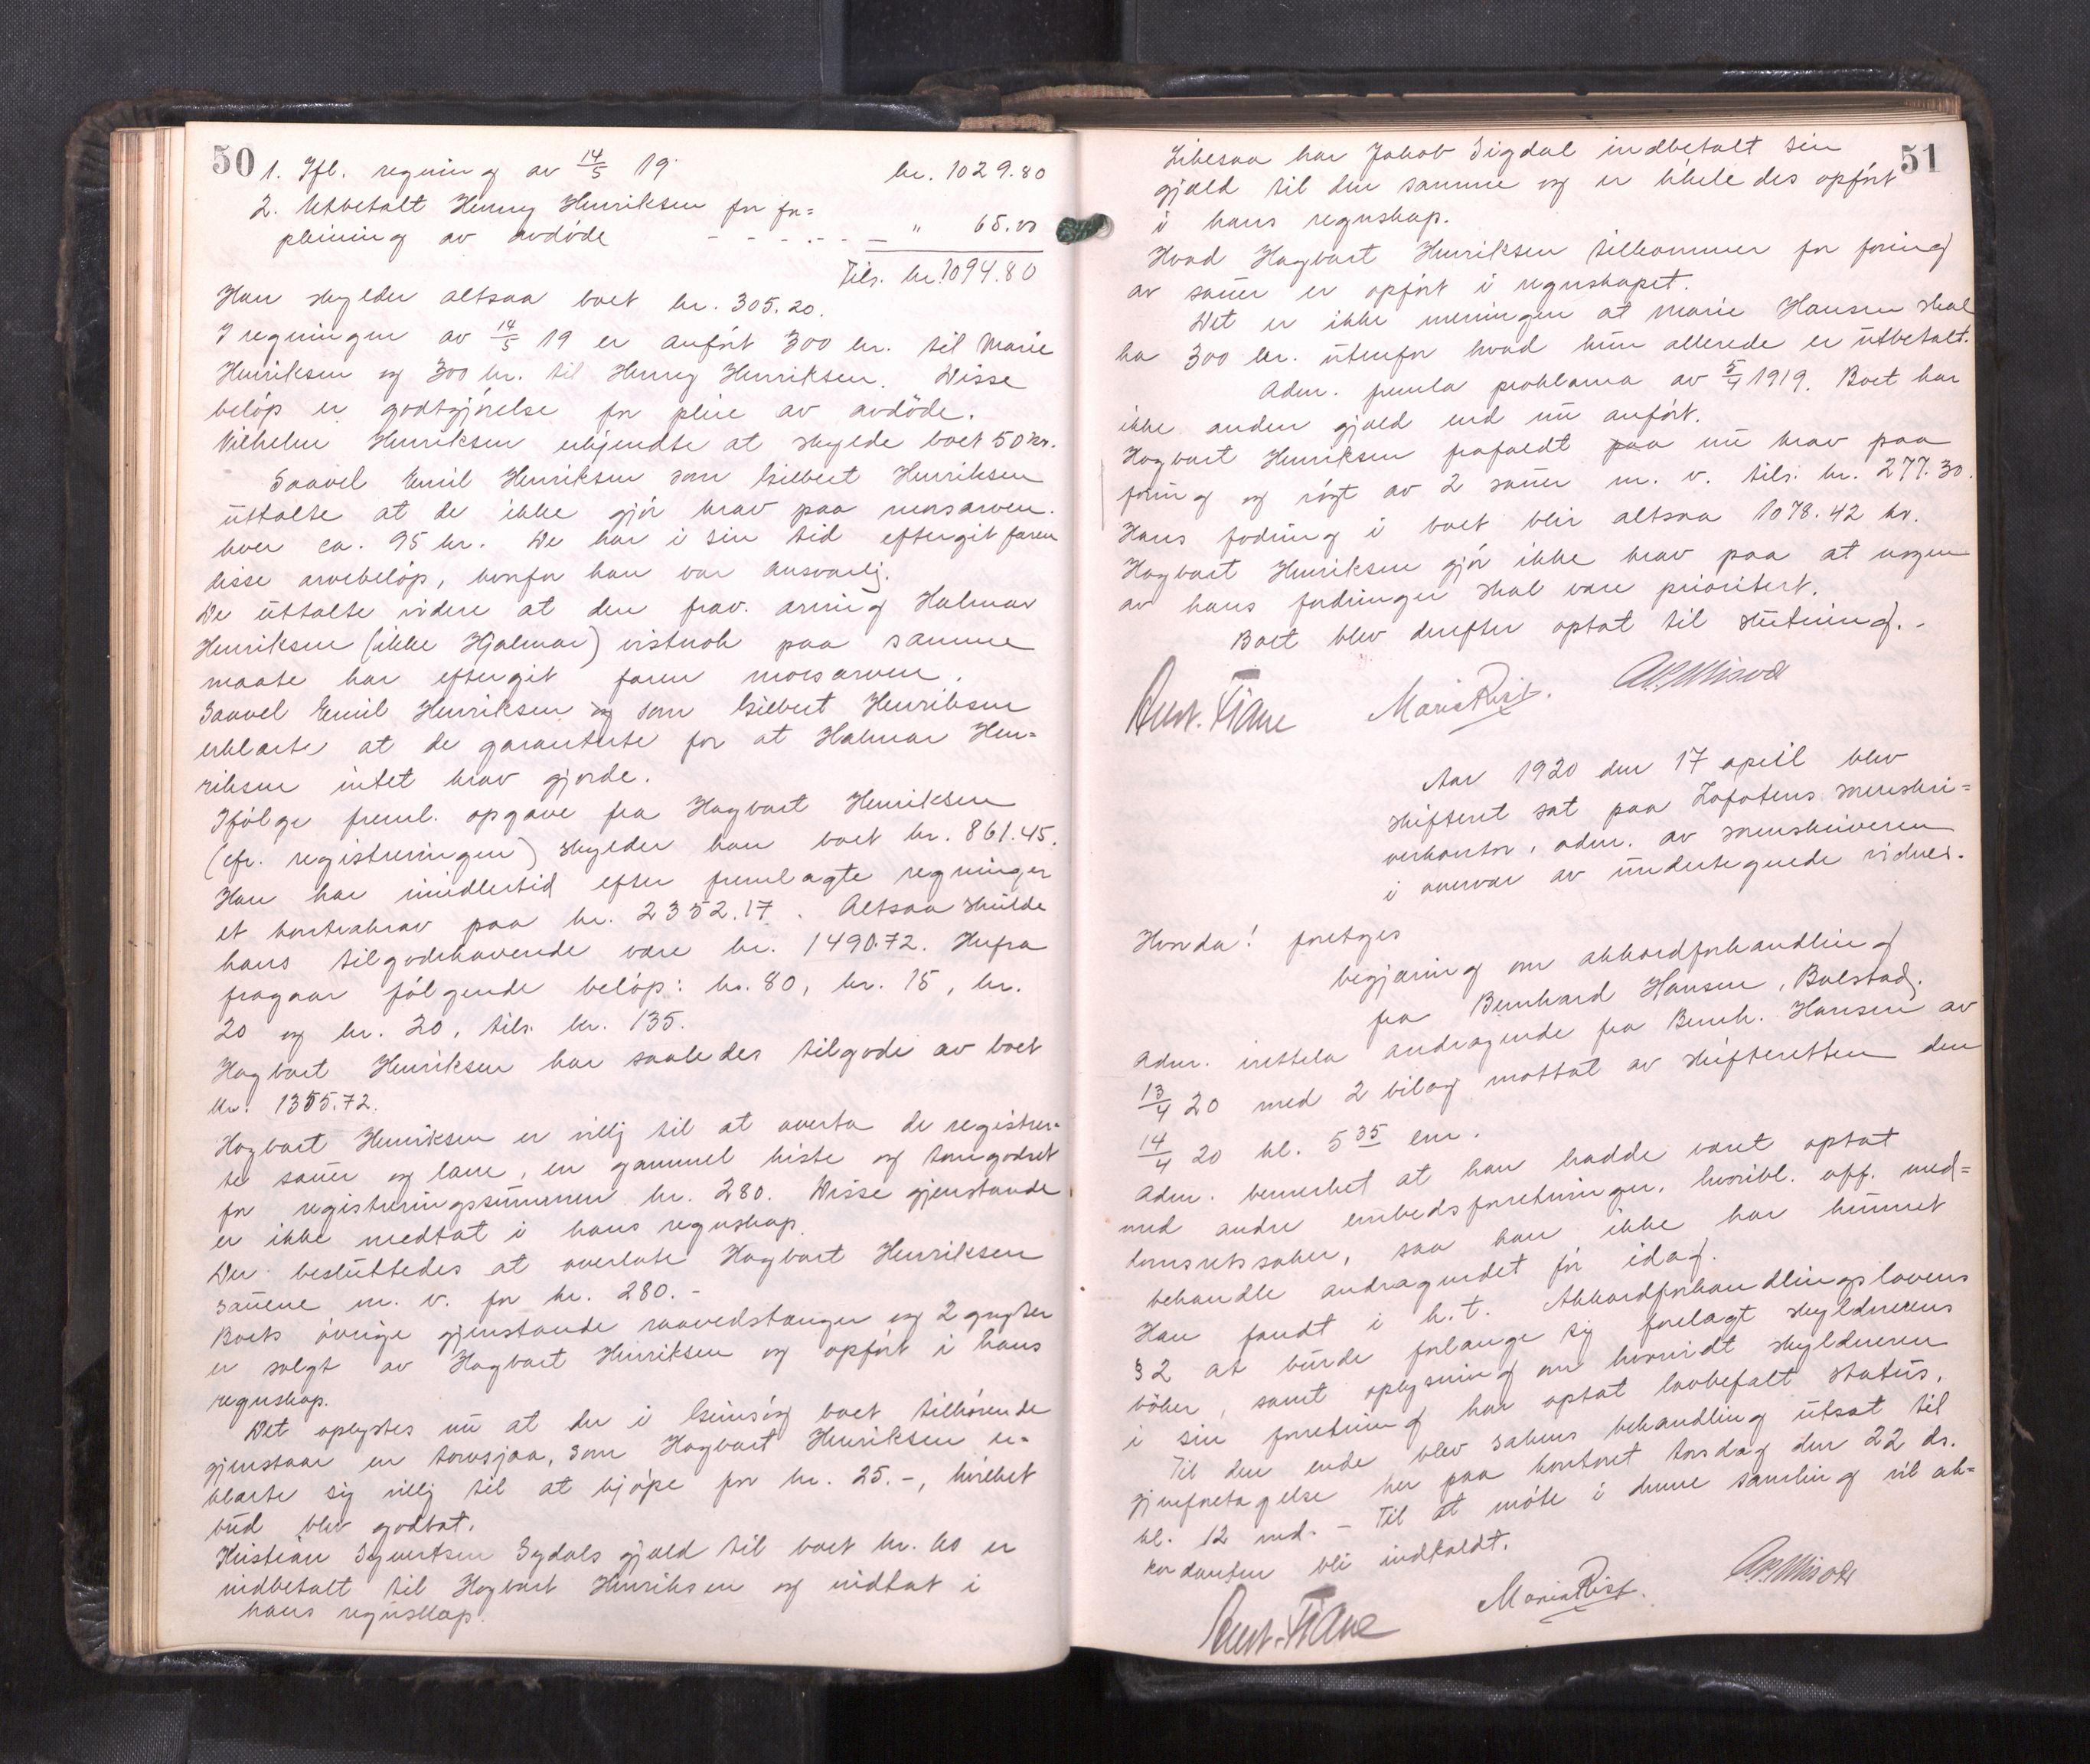 50
1. Ifl. regning av 14/5 19 kr. 1029.80
2. Utbetalt Henry Henriksen for for=
pleining av avdöde - - - - - - " 65.00
Tils. kr. 1094.80
Han skylder altsaa boet kr. 305.20.
I regningen av 14/5 19 er anfört 300 kr. til Marie
Henriksen og 300 kr. til Henry Henriksen. Disse
belöp er godtgjörelse for pleie av avdöde.
Vilhelm Henriksen erkjendte at skylde boet 50 kr.
Saavel Emil Henriksen som Gilbert Henriksen
uttalte at de ikke gjör krav paa morsarven.
hver ca. 95 kr. De har i sin tid eftergit faren
disse arvebelöp, hvorfor han var ansvarlig.
De uttalte videre at den frav. arving Halmar
Henriksen (ikke Hjalmar) vistnok paa samme
maate har eftergit faren morsarven.
Saavel Emil Henriksen og som Gilbert Henriksen
erklærte at de garanterte for at Halmar Hen=
riksen intet krav gjorde.
Ifölge freml. opgave fra Hagbart Henriksen
(cfr. registreringen) skylder han boet kr. 861.45.
Han har imidlertid efter fremlagte regninger
et kontrakrav paa kr. 2352.17. Altsaa skulde
hans tilgodehavende være kr. 1490.72. Herfra
fragaar fölgende belöp: kr. 80, kr. 15, kr.
20 og kr. 20, tils. kr. 135.
Hagbart Henriksen har saaledes tilgode av boet
kr. 1355.72.
Hagbart Henriksen er villig til at overta de registrer=
te sauer og lam, en gammel kiste og
for registreringssummen kr. 280. Disse gjenstande
er ikke medtat i hans regnskap.
Der besluttedes at overlate Hagbart Henriksen
sauene m. v. for kr. 280.-
Boets övrige gjenstande raavedstanger og 2 gryter
er solgt av Hagbart Henriksen og opfört i hans
regnskap.
Det oplystes nu at der i Gimsöy boet tilhörende
gjenstaar en torvsjaa, som Hagbart Henriksen er=
klærte sig villig til at kjöpe for kr. 25.-, hvilket
bud blev godtat.
Kristian Sjvertsen Sydals gjæld til boet kr. 60 er
indbetalt til Hagbart Henriksen og indtat i
hans regnskap.
51
Likesaa har Jakob Sigdal indbetalt sin
gjæld til den samme og er likeledes opfört
i hans regnskap.
Hvad Hagbart Henriksen tilkommer for foring
av sauer er opfört i regnskapet.
Det er ikke meningen at Marie Hansen skal
ha 300 kr. utenfor hvad hun allerede er utbetalt.
Adm. fremla proklama av 5/4 1919. Boet har
ikke anden gjæld end nu anfört.
Hagbart Henriksen frafaldt paa nu krav paa
foring og rögt av 2 sauer m. v. tils. kr. 277.30.
Hans fodring i boet blir altsaa 1078.42 kr.
Hagbart Henriksen gjör ikke krav paa at nogen
av hans fordringer skal være prioritert.
Boet blev derefter optat til slutning.-
Maria Rist.
Aar 1920 den 17 april blev
skifteret sat paa Lofotens sorenskri=
verkontor, adm. av sorenskriveren
i overvær av undertegnede vidner.
Hvorda! foretges
begjæring om akkordforhandling
fra Bernhard Hansen, Bolstad.
Adm. irettela andragende fra Bernh. Hansen av
13/4 20 med 2 bilag mottat av skifteretten den
14/4 20 kl. 5 35 em.
Adm. bemerket at han hadde været optat
med andre embedsforretninger, hvoribl. off. med=
domsretssaker, saa han ikke har kunnet
behandle andragendet för idag.
Han fandt i h. t. Akkordforhandlingslovens
§ 2 at burde forlange sig forelagt skyldnerens
böker, samt oplysning om hvorvidt skyldneren
i sin forretning har optat lovbefalt status.
Til den ende blev sakens behandling utsat til
gjenforetagelse her paa kontoret torsdag den 22 ds.
kl. 12 md. - Til at möte i denne samling vil ak=
kordanten bli indkaldt.
Maria Rist.